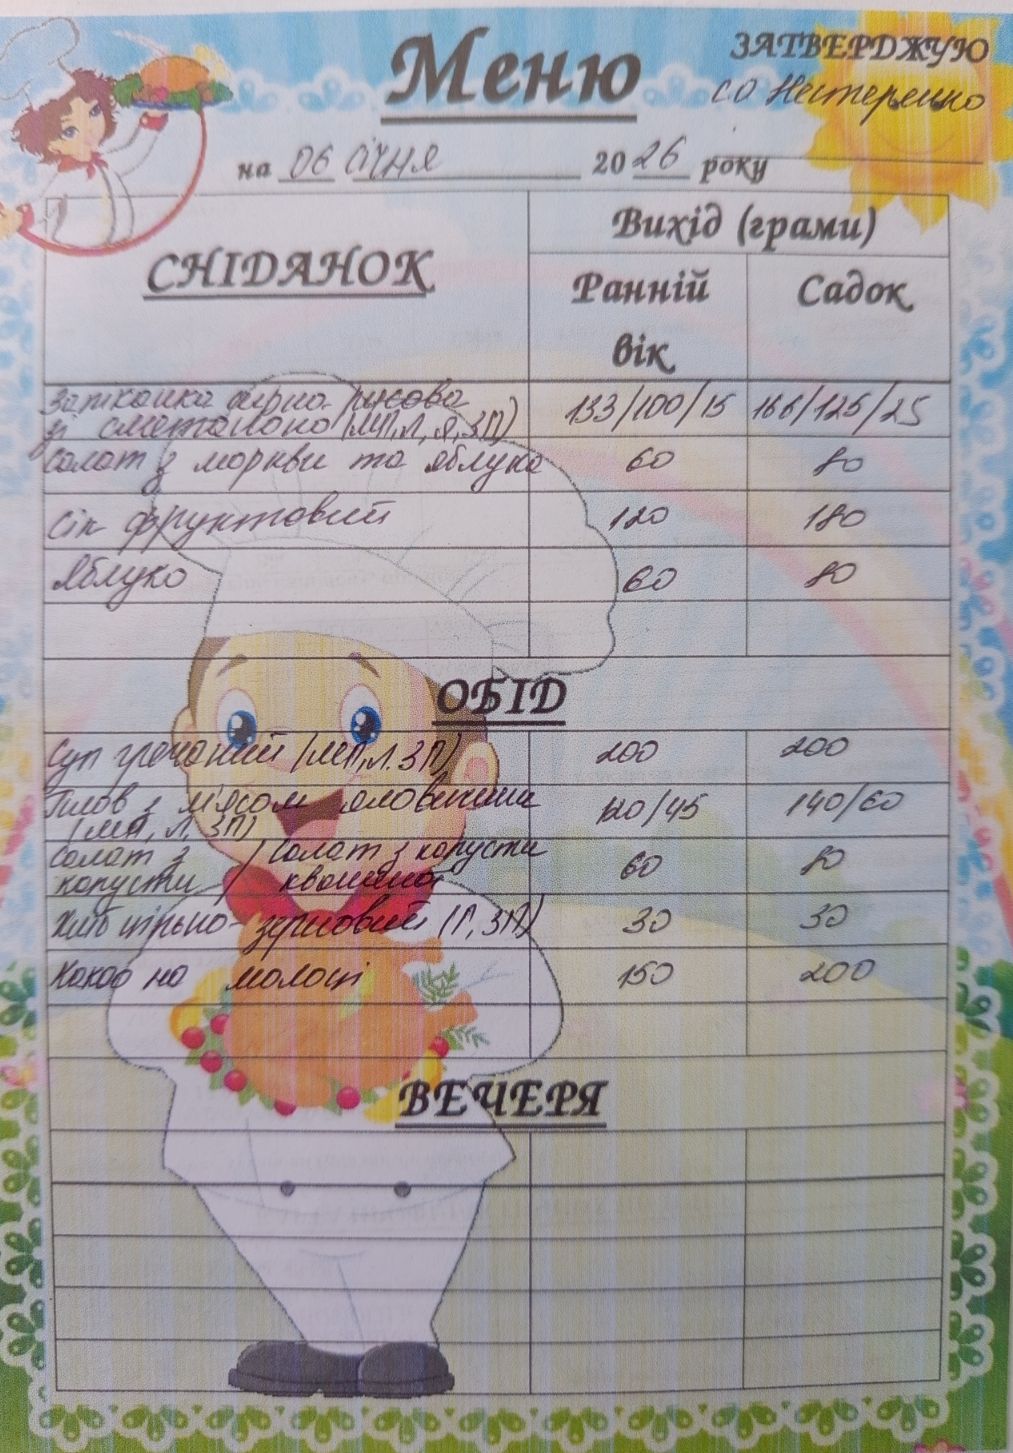 Меню
ЗАТВЕРДЖУЮ
Нестеренко
на 06 січня 2026 року
СНІДАНОК
Вихід (грами)
Ранній вік
Садок
Запіканка сирно-рисова 133/100/15 166/125/25
зі сметаною (МП, Л, Я, ЗП)
Салат з моркви та яблука 60 80
Сік фруктовий 120 180
Яблуко 60 80
ОБІД
Суп гречаний (МП, Л. ЗП) 200 200
Плов з м'ясом яловичини 120/45 140/60
(МП, Л, ЗП)
Салат з капусти / Салат з капусти квашеної 60 80
Хліб цільно-зерновий (Г, ЗП) 30 30
Какао на молоці 150 200
ВЕЧЕРЯ